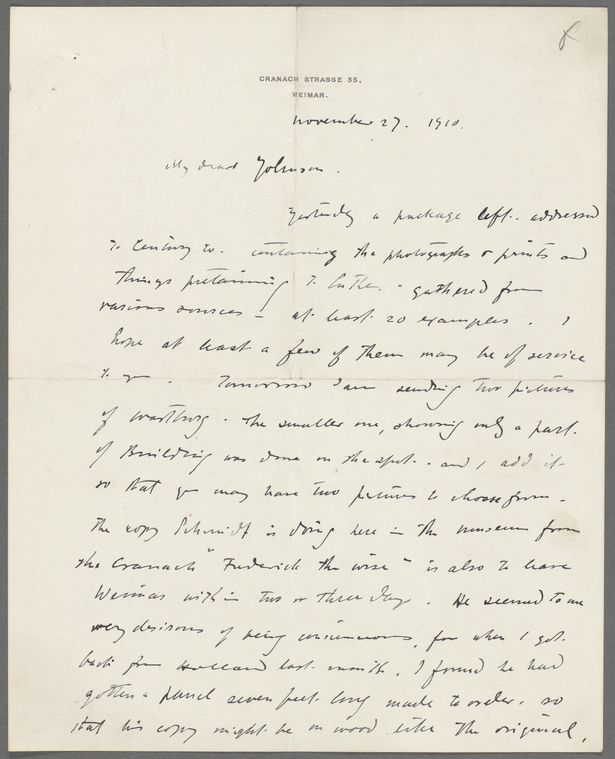 CRANACH STRASSE 35,
WEIMAR.
November 27. 1910.
My dear Johnson.
Yesterday a package left. addressed
to Century Co. containing the photographs & prints and
things pertaining to Luther - gathered from
various sources - at least 20 examples. I
hope at least a few of them may be of service
to you. Tomorrow I am sending two pictures
of Wartburg. The smaller one, showing only a part
of Building was done on the spot - and I add it
so that you may have two pictures to choose from.
The copy Schmidt is doing here in the museum from
the Cranach "Frederick the wise" is also to leave
Weimar within two or three days. He seemed to me
very desirous of being , for when I got
back from Holland last month, I found he had
gotten a panel seven feet long made to order, so
that his copy might be on wood like the original,